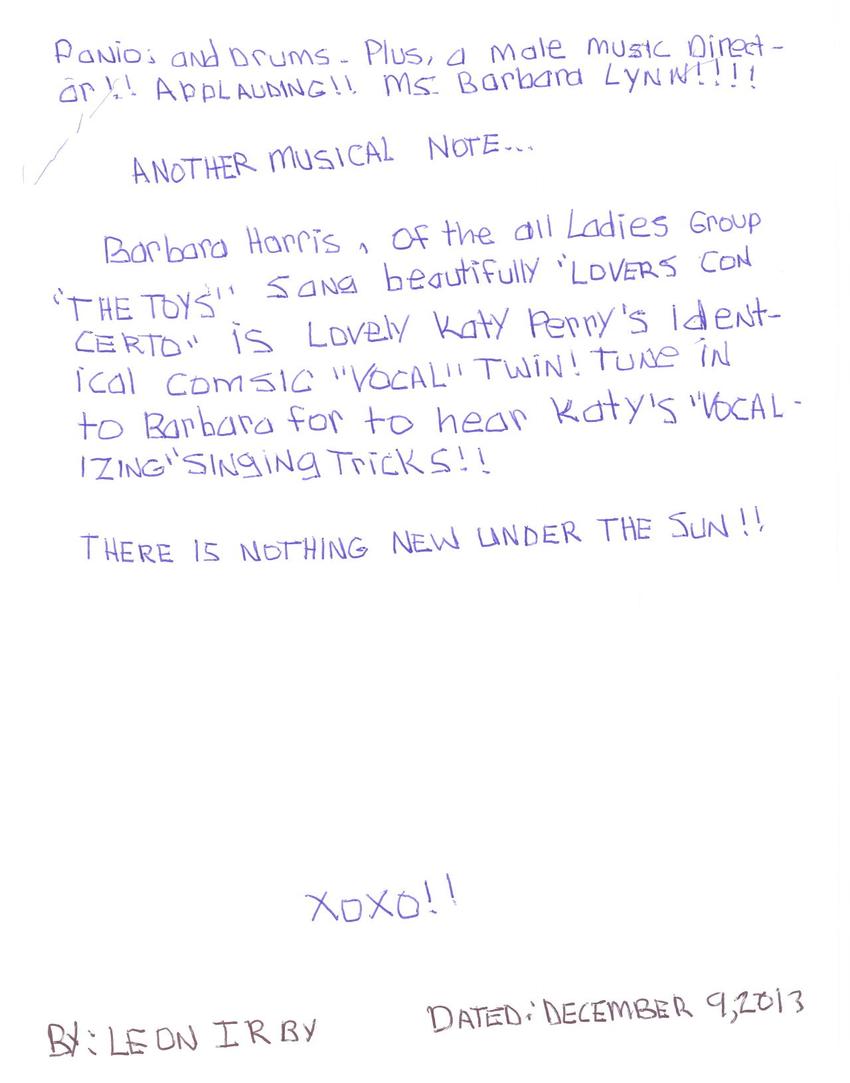 Panio; and Drums. Plus, a male music Direct-
or!!! APPLAUDING!! Ms. Barbara LYNN!!!!
ANOTHER MUSICAL NOTE...
Barbara Harris, of the all Ladies Group
"THE TOYS" Sang beautifully "LOVERS CON
CERTO" is Lovely Katy Perry's Ident-
ical comsic "VOCAL" TWIN! TUNE IN
to Barbara for to hear Katy's "VOCAL-
IZING" SINGING TRICKS!!
THERE IS NOTHING NEW UNDER THE SUN!!
XOXO!!
BY: LEON IRBY DATED: DECEMBER 9, 2013